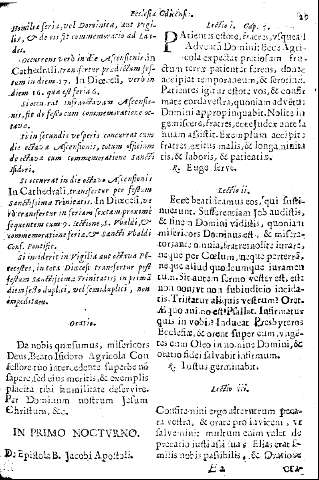 Ecclesia Cadicensi.
simili feria, vel Dominica, aut Vigi-
lia, & de eis fit commemoratio ad Lau-
des.
Occurrens verò in die Ascensionis in
Cathedrali, transfertur prædictum fes-
tum in diem 17. In Diœcesi, verò in
diem 16. qua est feria 6.
Si occurrat infraoctavam Ascensio-
nis, fit de festo cum commemoratione oc-
tavæ.
Si in secundis vesperis concurrat cum
die octava Ascensionis, totum officium
de octava cum commemoratione Sancti
Isidori.
Si occurrat in die octava Ascensionis
In Cathedrali, transfertur post festum
Sanctissimæ Trinitatis. In Diœcesi, ve-
rò transfertur in feriam sextam proximè
sequentem cum 9. lectione, S. Vbaldi, &
commemoratione feriæ, & Sancti Vbaldi
Conf. Pontific.
Si inciderit in Vigilia aut octava Pē-
tecostes, in tota Diœcesi transfertur post
festum Sanctissimæ Trinitatis, in primā
diem festo duplici, vel semiduplici, non
impeditam.
Oratio.
Da nobis quæsumus, misericors
Deus, Beato Isidoro Agricola Con-
fessore tuo intercedente superbe nō
sapere, sed eius meritis, & exemplis
placita tibi humilitate deservire.
Per Dominum nostrum Jesum
Christum, &c.
IN PRIMO NOCTVRNO.
De Epistola B. Jacobi Apostoli.
Lectio i. Cap. 5.
Patientes estote, fratres, vsque ad
Adventū Domini; Ecce Agri-
cola expectat prætiosum fru-
ctum terræ patienter ferens, donec
accipiat temporaneum, & serotinū.
Patientes igitur estote vos, & confir-
mate corda vestra, quoniam adventus
Domini appropinquabit. Nolite in-
gemiscere, fratres, ecce Judex ante Ja
nuam assistit. Exemplum accipite
fratres, exitus mali, & longa nimita
tis, & laboris, & patientiæ.
℟. Euge serve.
Lectio ii.
Ecce beatificamus eos, qui susti-
nuerunt. Sufferentiam Job audistis,
& finem Domini vidistis, quoniam
misericors Dominus est, & misera-
tor; ante omnia, fratres nolite jurare,
neque per Cœlum, neque per terrā,
neque aliud quodcumque iuramen
tum. Sit autem sermo vester est, est:
non, non: vt non sub iudicio incida-
tis. Tristatur aliquis vestrum? Oret.
Æquo animo est? Psallat. Infirmatur
quis in vobis? Inducat Presbyteros
Ecclesiæ, & orent super eum, vngē-
tes eum Oleo in nomine Domini, &
oratio fidei salvabit infirmum.
℟. Justus germinabit.
Lectio iii.
Confitemini ergo alterutrum pecca
ta vestra, & orate pro invicem, vt
salvemini: multum enim valet de-
precatio iusti assidua. Elias erat si-
milis nobis passibilis, & Oratione
E 2
ora-